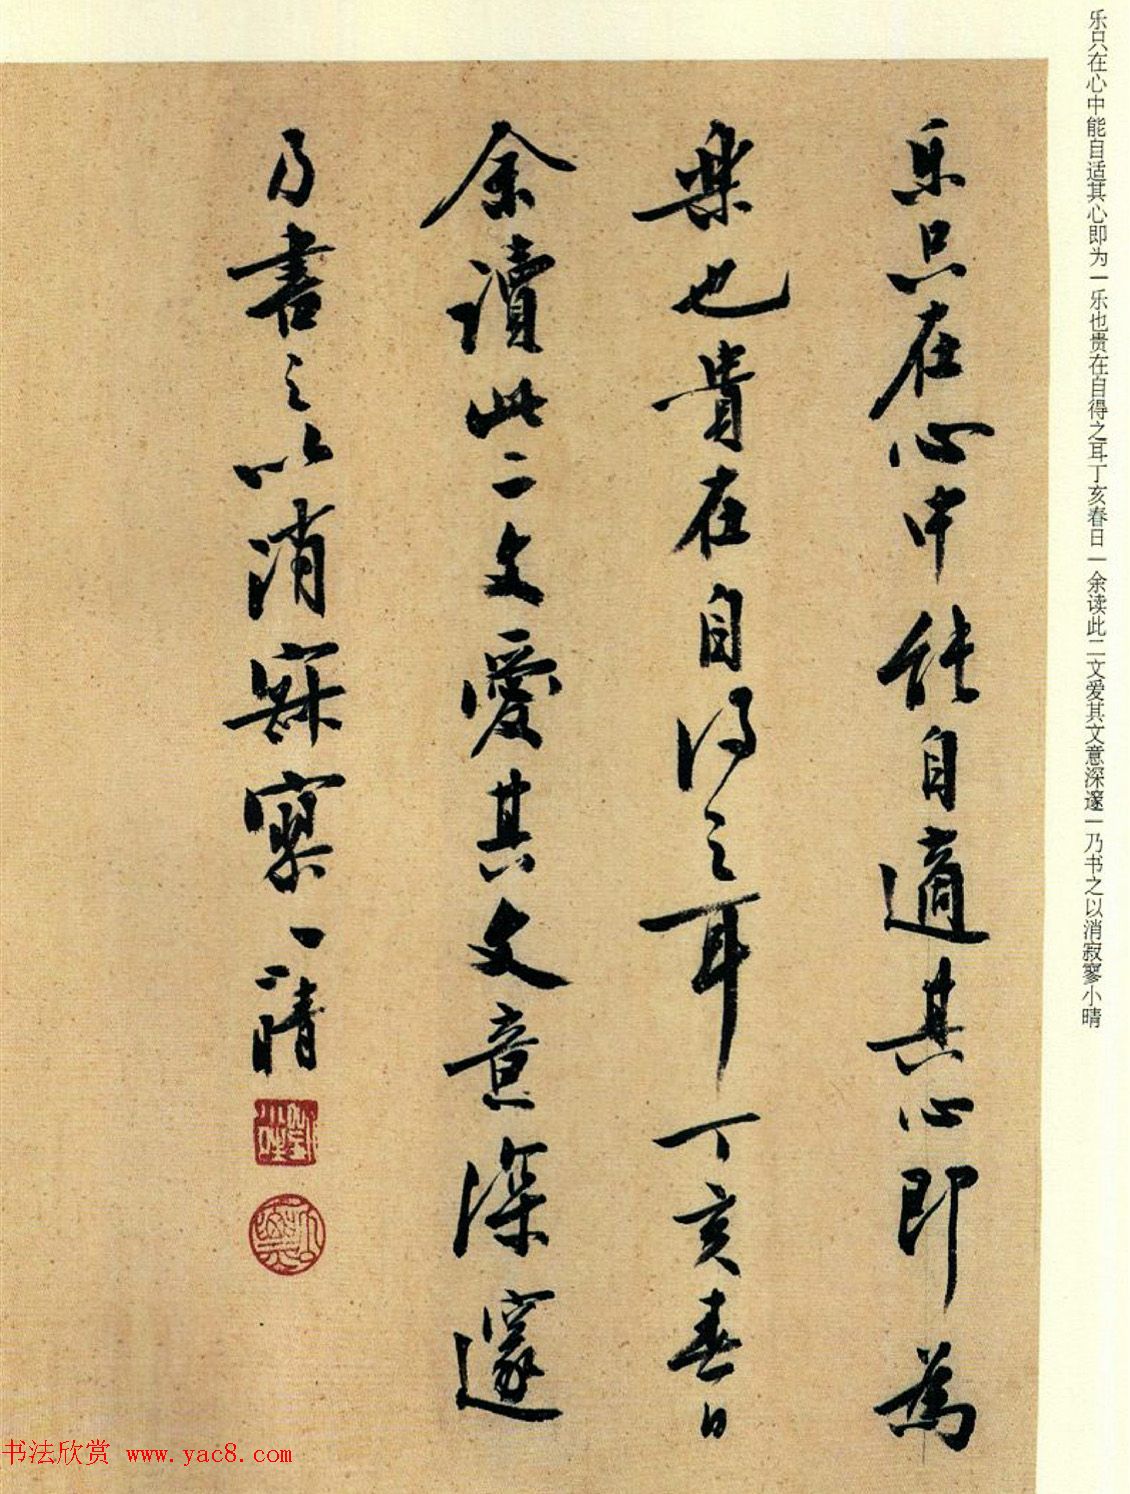 乐只在心中能自适其心即为一乐也贵在自得之耳丁亥春日一余读此二文爱其文意深邃一乃书之以消寂寥小晴
乐只在心中能自適其心即為
樂也貴在自得之耳丁亥春日
余讀此二文愛其文意深邃
乃書之以消寂寥小晴
劉小晴
书法欣赏 www.yac8.com